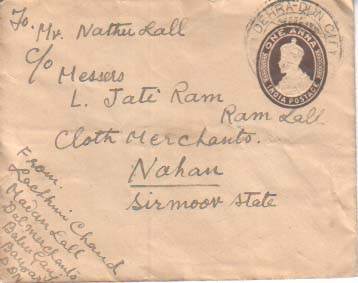 To,
Mr. Nathu Lall
C/o
Messers
L. Jati Ram
Ram Lall
Cloth Merchants.
Nahan
Sirmoor State
From.
Lachhmi Chand
Madan Lall
Dal merchants
Babu Ganj
Bazar
D.Dn
DEHRA-DUN CITY
ONE ANNA
INDIA POSTAGE